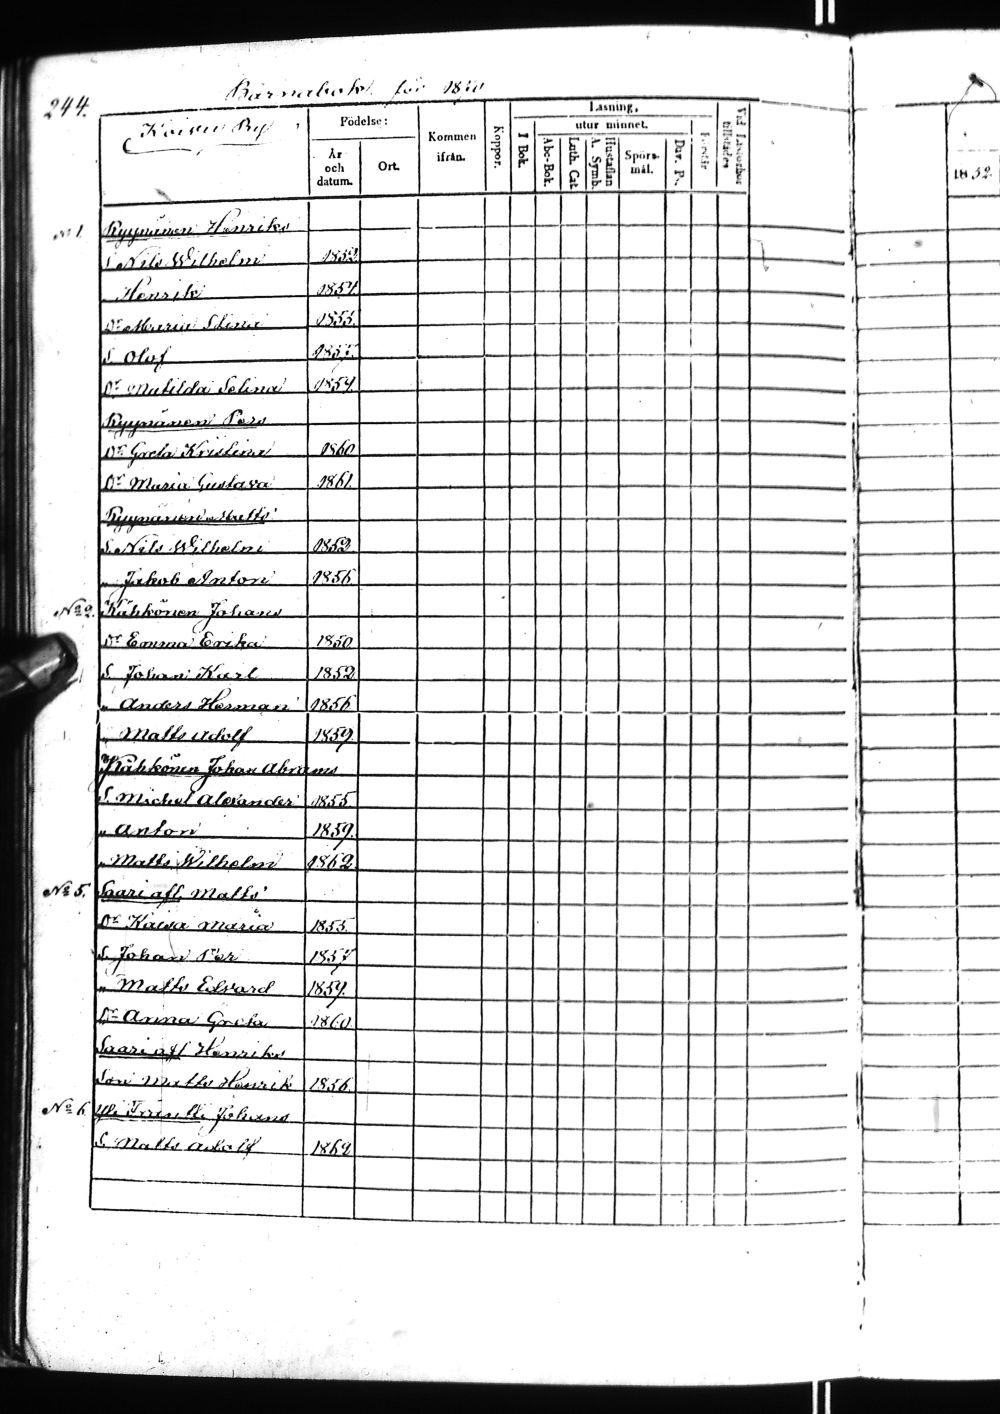 244.
Barnabok för 18
By
Födelse:
År och datum.
Ort.
Kommen ifrån.
Koppor.
Läsning,
I Bok.
utur minnet.
Abc-Bok.
Luth. Cat.
Hustaflan A. Symb.
Spörs-mål.
Dav. Ps.
Förstår
Vid Läseförhör tillstädes
1852.
No 1. Ryynänen Henriks
S. Nils Wilhelm 1852
„ Henrik 1854.
Dr Maria Stina 1855.
S. Olof 1857.
Dr Matilda Selina 1859.
Ryynänen Pers
Dr Greta Kristina 1860
Dr Maria Gustava 1861.
Ryynänen Matts
S. Nils Wilhelm 1852.
„ Jakob Anton 1856
No 2. Kähkönen Johans
Dr Emma Erika 1850
S. Johan Karl 1852
„ Anders Herman 1856
„ Matts Adolf 1859.
Kähkönen Johan Abrams
S. Michel Alexander 1855
„ Anton 1859.
„ Matts Wilhelm 1862
No 5. Saari afl. Matts
Dr Kaisa Maria 1855.
S. Johan Per 1857
„ Matts Edvard 1859.
Dr Anna Greta 1860
Saari afl Henriks
Son Matts Henrik 1856.
No 6. Yli Johans
S. Matts Adolf 1862